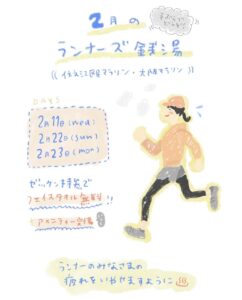 2月の
ランナーズ銭湯
マラソン・大阪マラソン
DAYS
2月11日(wed)
2月22日(sun)
2月23日(mon)
ゼッケン持参で
フェイスタオル無料!!
アメニティー充実
ランナーのみなさまの
疲れをいやせますように